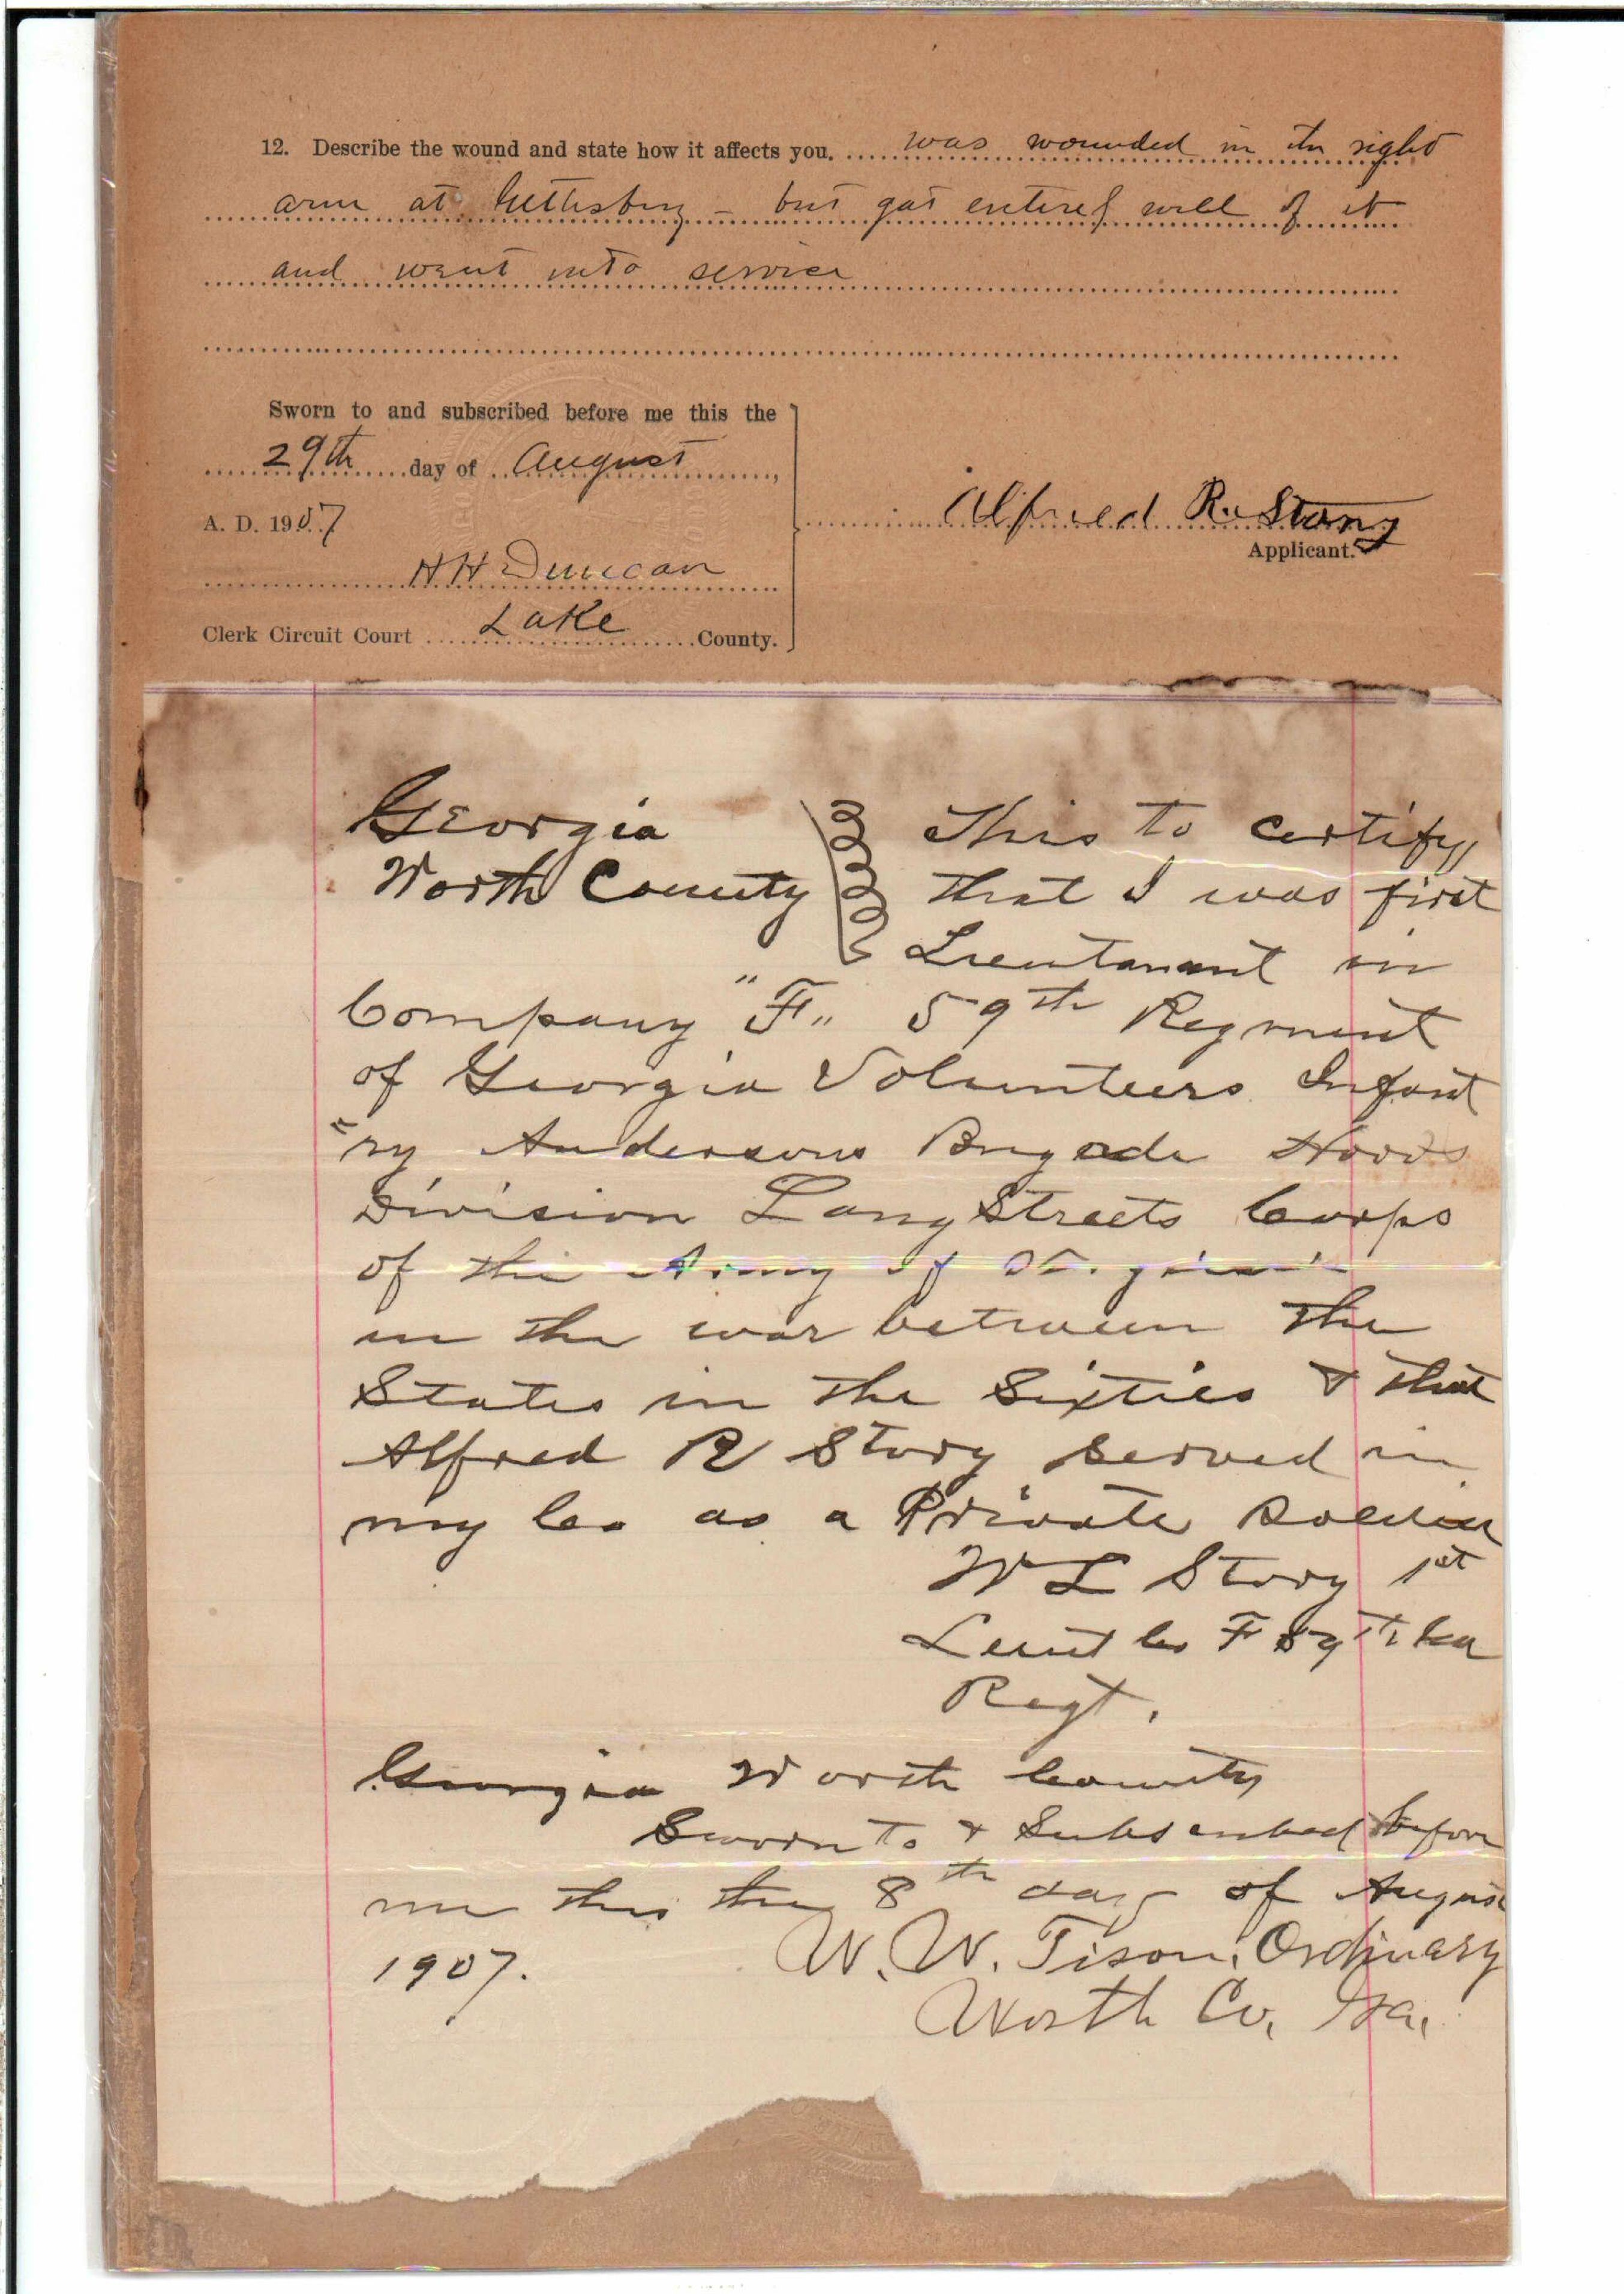 12. Describe the wound and state how it affects you. was wounded in the right
arm at Gettisburg – but got entirely well of it
and went into service
Sworn to and subscribed before me this the
29th day of August,
A. D. 1907
Alfred R. Story
Applicant.
H H Duncan
Clerk Circuit Court Lake County.
Georgia This to certify
Worth County that I was first
Lieutanant in
Company "F" 59th Regment
of Georgia Volunteers Infant
"ry Andersons Brigade Hoods
Division LongStreets Corps
of the Army of Virginia
in the war between the
States in the Sixties & that
Alfred R Story served in
my Co as a Private Soldier
W L Story 1st
Lieut Co F 59th Ga
Regt.
Georgia Worth County
Sworn to & Subscribed before
me this the 8th day of August
1907. W. W. Tison, Ordinary
Worth Co, Ga,